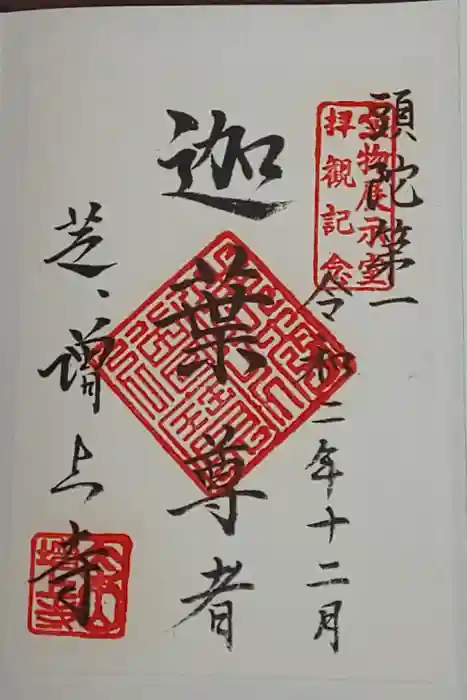 頭陀第一
宝物展示室
拝観記念
令和二年十二月
迦葉尊者
芝、増上寺